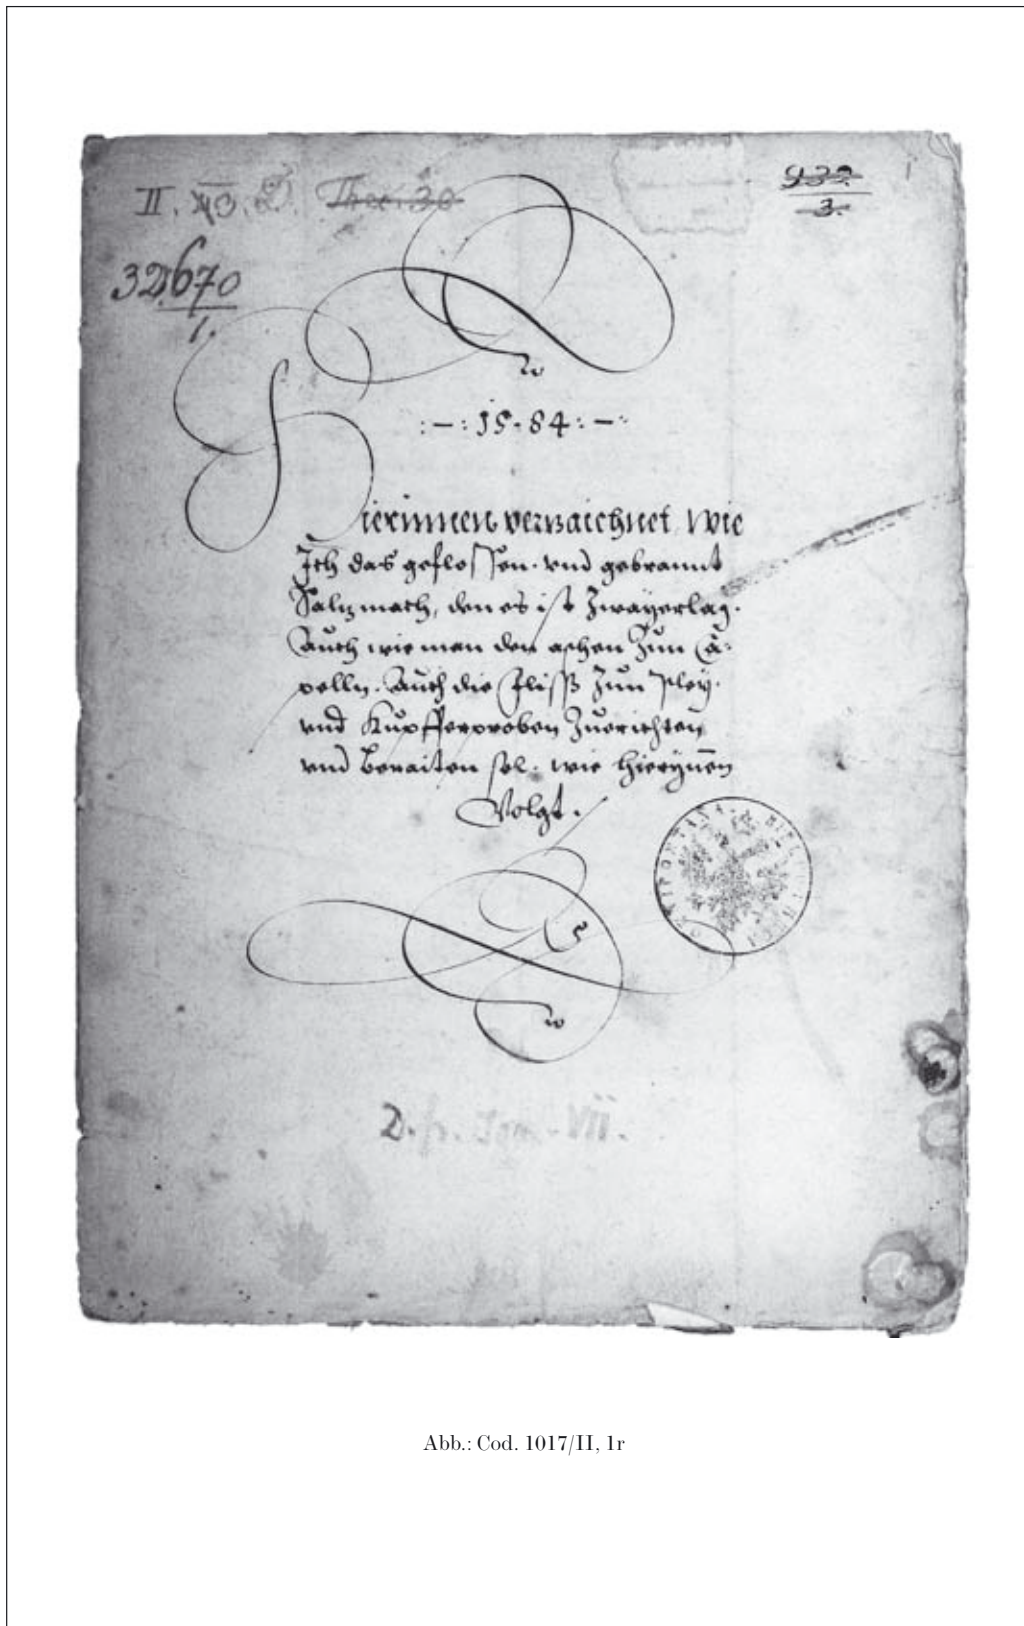 II.
933.
3.
1
32670
1.
: – : 15 · 84 : – :
Hierinnen verzaichnet, wie
Ich das geflossen. vnd gebrannt
Saltz mach, den es ist Zwayerlay.
Auch wie man den aschen Zun Ca-
pelln. Auch die Flüss Zun Pley.
vnd Kupfferproben Zuerichten
vnd beraiten sol. wie hierÿnen
Volgt.
VII.
Abb.: Cod. 1017/II, 1r